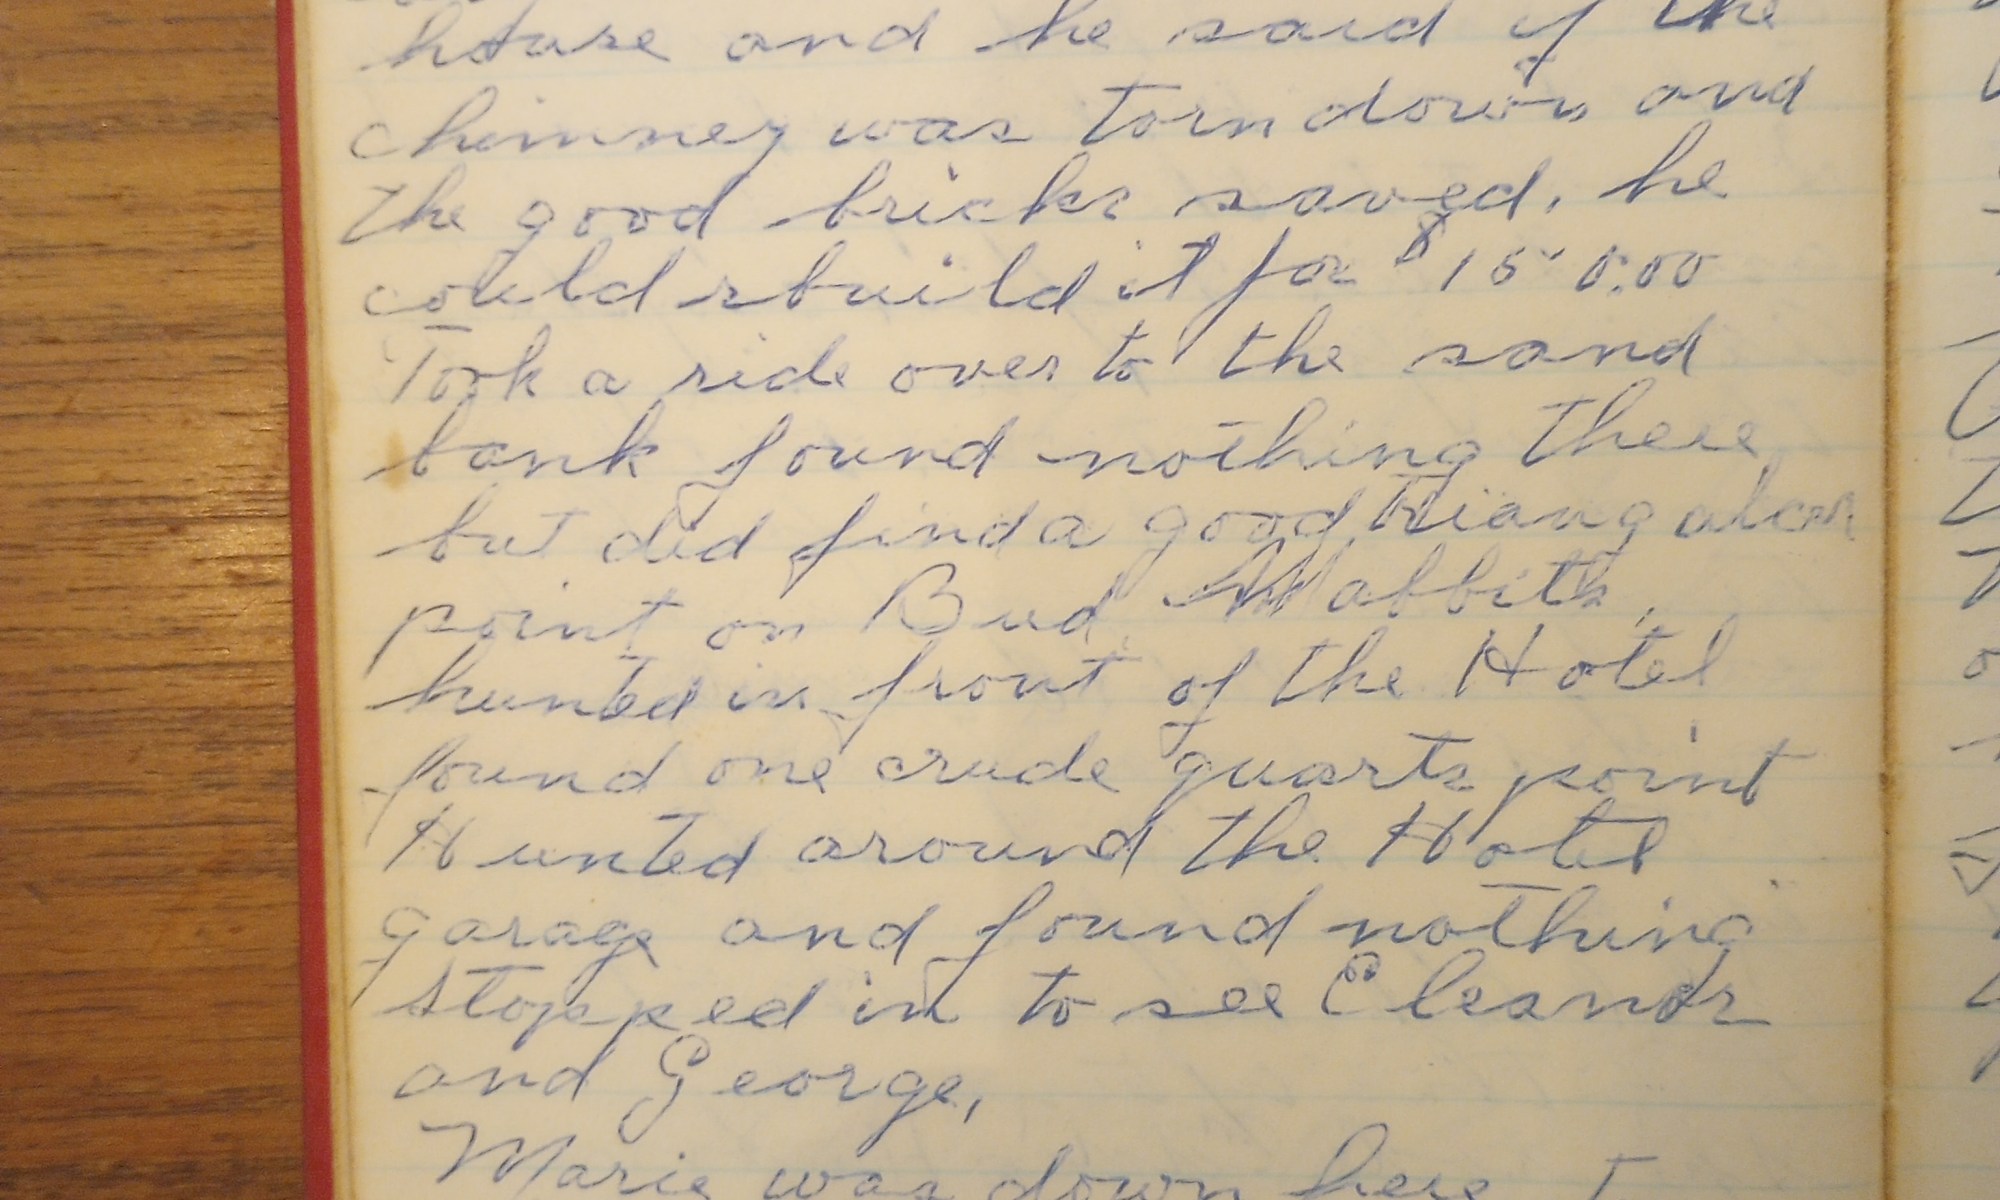 house and he said if the
chimney was torn down and
the good bricks saved, he
could rbuild it for $150.00
Took a ride over to the sand
bank found nothing there
but did find a good
point on Bud Mabbitts,
hunted in front of the Hotel
found one crude quarts point
Hunted around the Hotel
garage and found nothing
stopped in to see Eleanor
and George,
Marie was down here